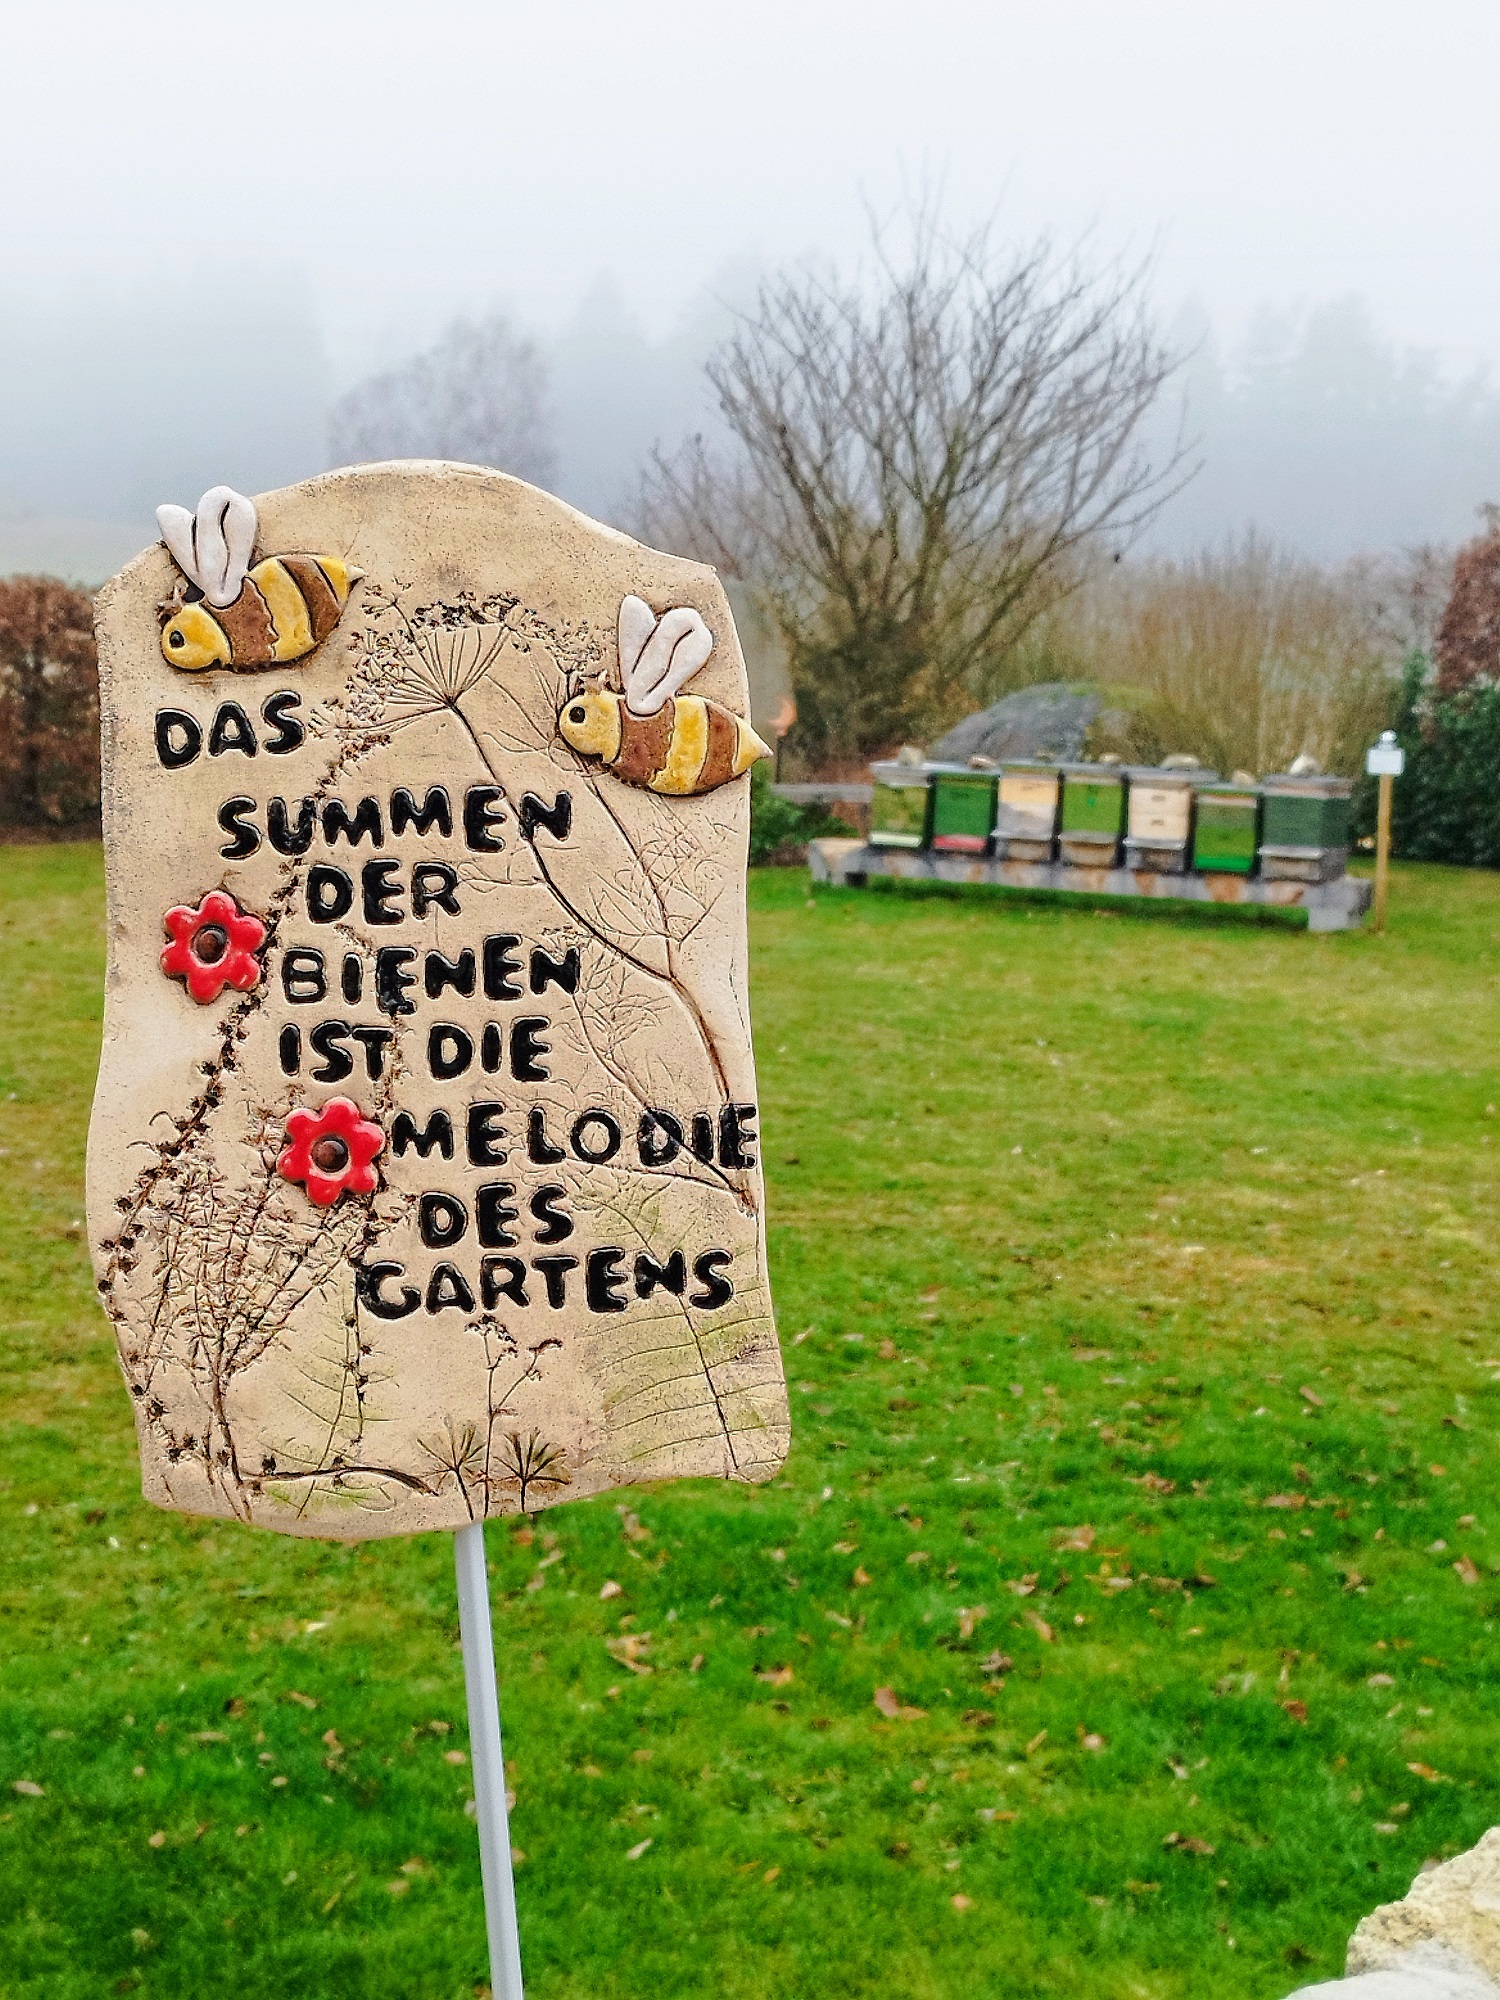 DAS
SUMMEN
DER
BIENEN
IST DIE
MELODIE
DES
GARTENS